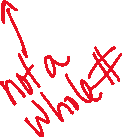 not a
whole #